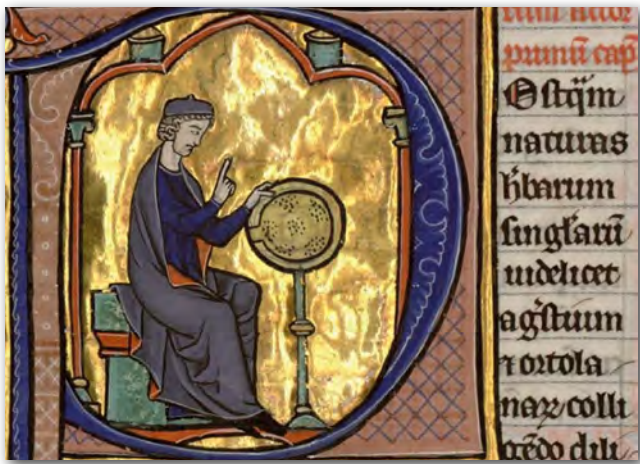 primū cap̄
Ostq̄m
naturas
h̄barum
singl̓arū
uidelicet
ag̓stium
⁊ ortola
naꝝ colli
gēdo dili